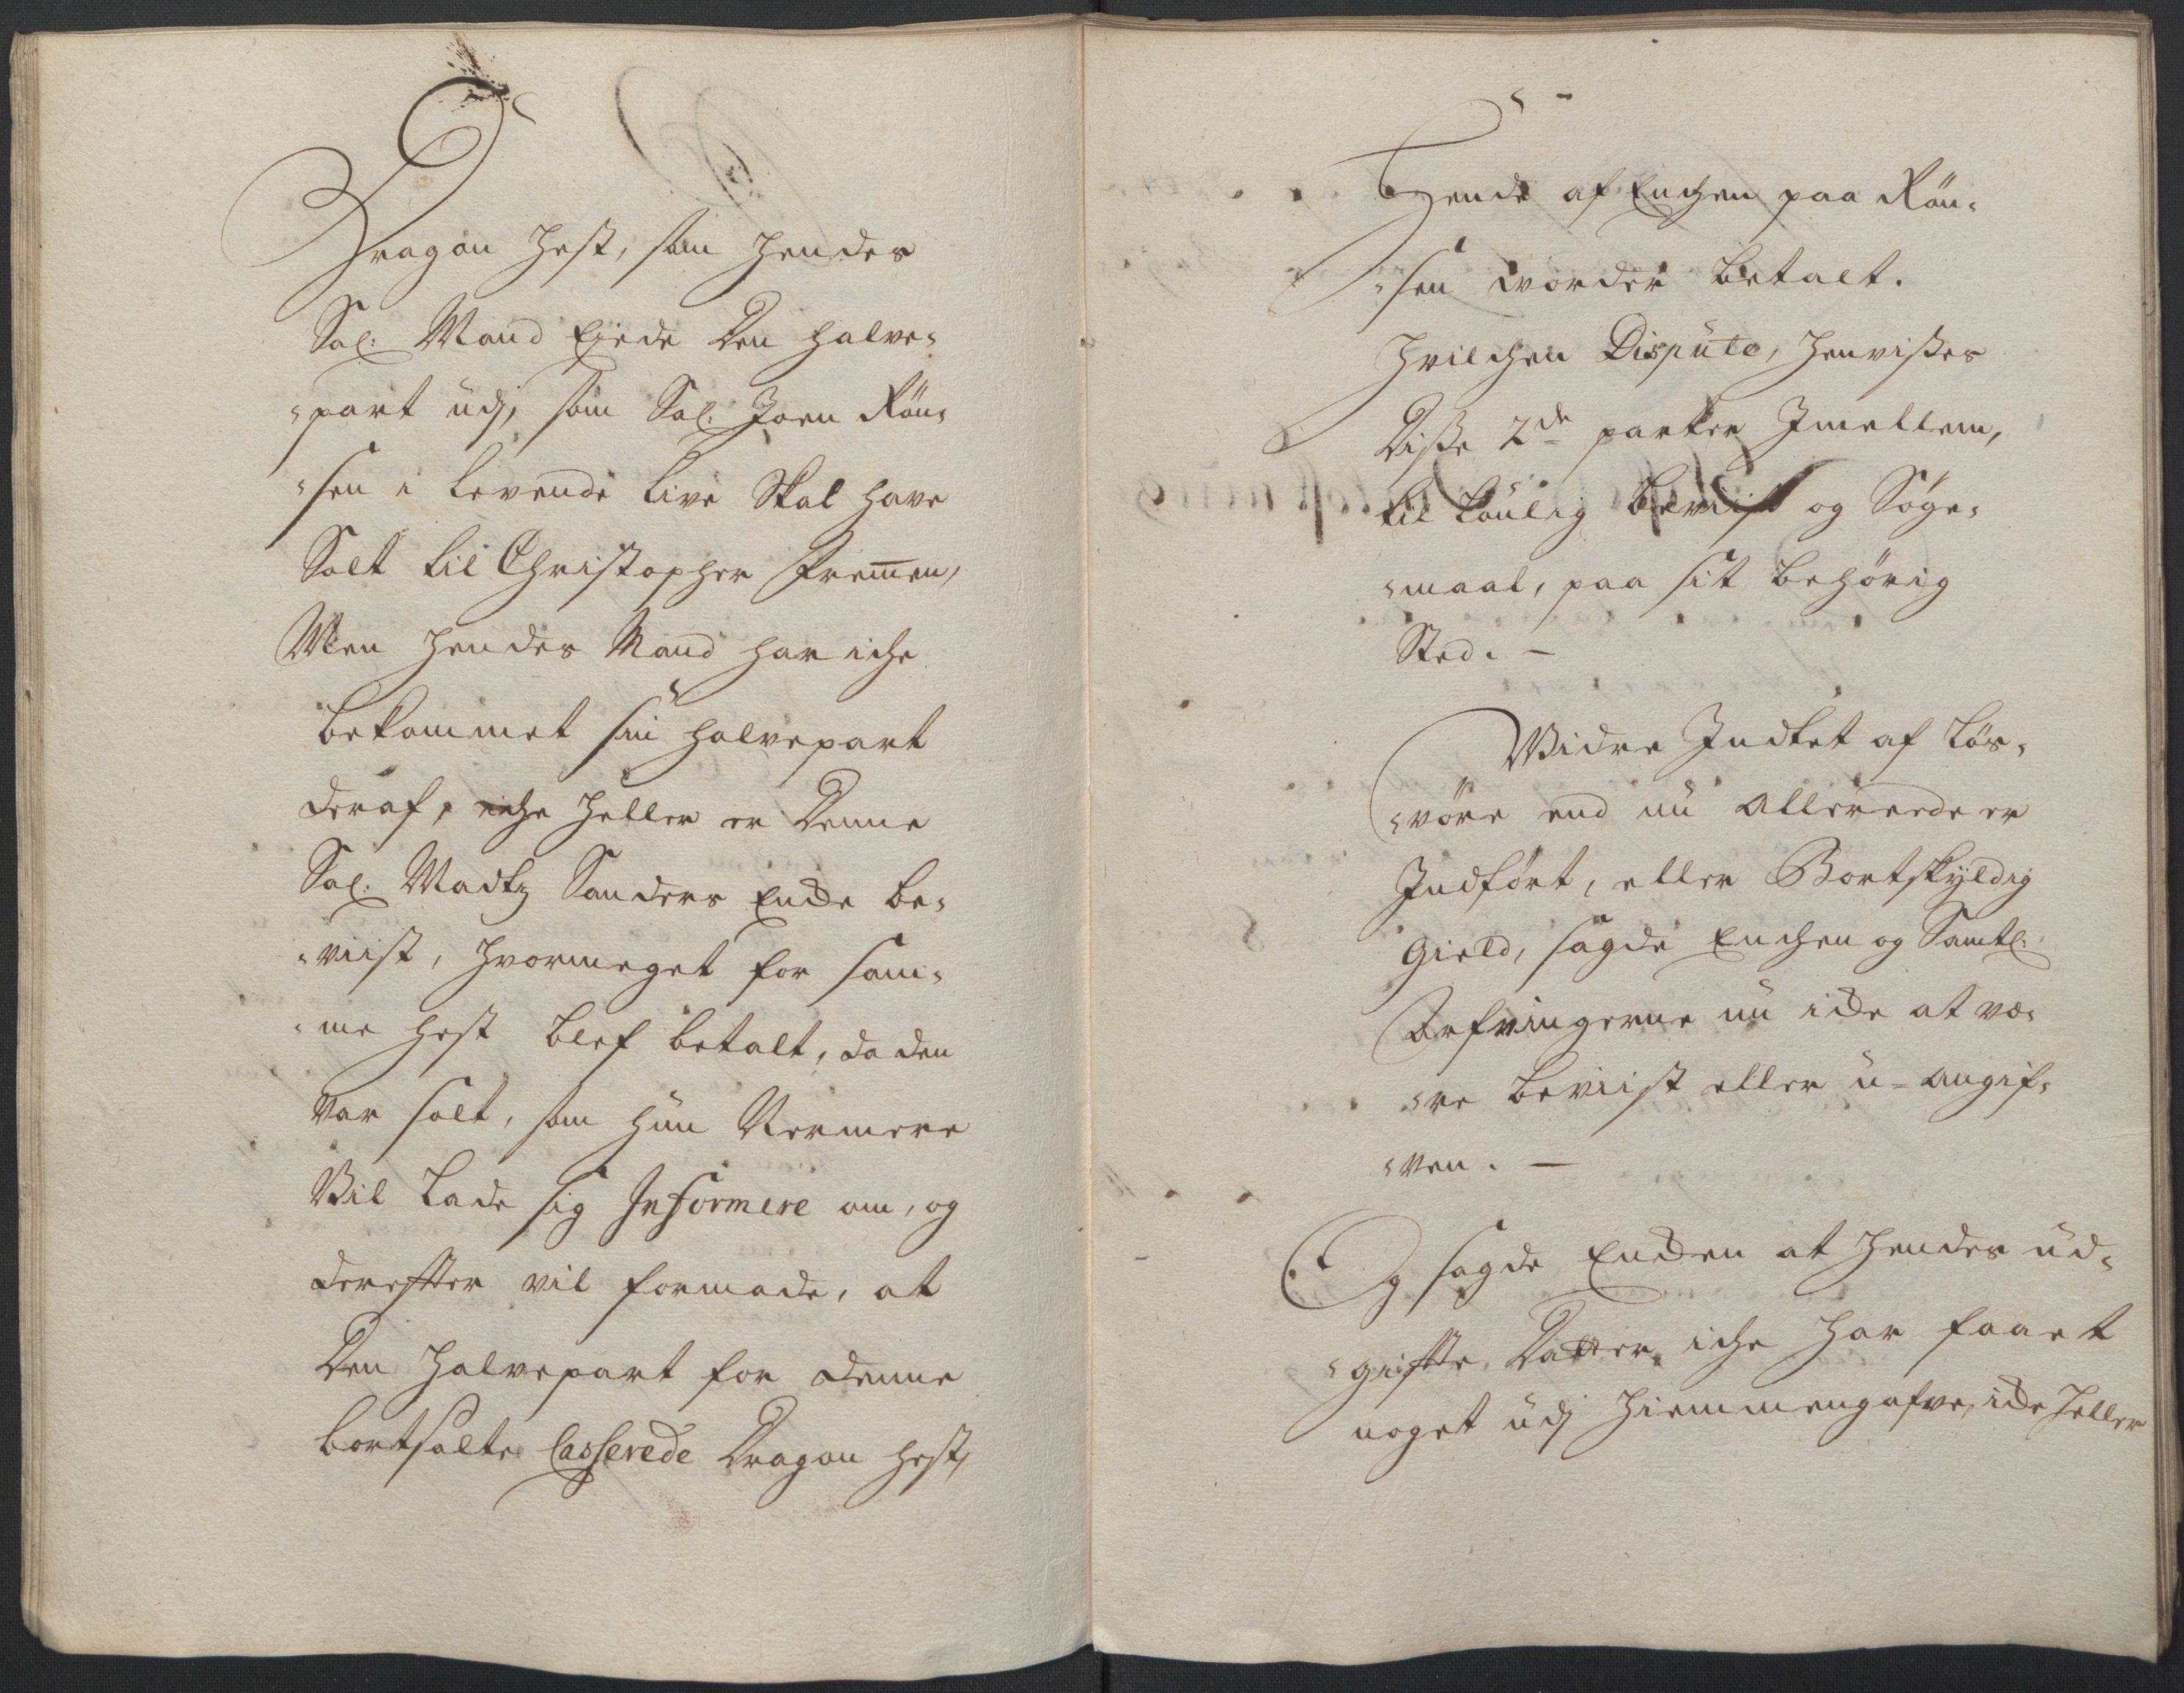 Dragon hest, som hendes
Sal: Mand Ejede Den halve-
part udj, som Sal: Joen Rön-
sen i Levende Live Skal have
Solt til Christopher Fremen,
Men hendes Mand har iche
bekommet sin halvepart
deraf, iche heller er Denne
Sal: Madtz Sanders Encke be-
viist, hvormeget for sam-
me hest blef betalt, da den
var solt, som hun Nermere
Vil Lade sig Informere om, og
dereffter vil formode, at
Den halvepart for denne
bortsolte Casserede Dragon hest,
Hende af Enchen paa Rön-
sen vorder betalt.
Hvilchen Dispute, henvises
Disse 2de parter Jmellem,
til Loulig beviis og Søge-
maal, paa sit behörig
Sted. —
Vidre Jndtet af Lös-
vöre end nu allereede er
Jndfört, eller Bortskyldig
Gield, sagde Enchen og Samtl.
Arfvingerne nu icke at væ-
re beviist eller u-angif-
ven. —
Og sagde Encken at hendes ud-
giffte Datter iche har faaet
noget udj hiemmengafve, icke heller